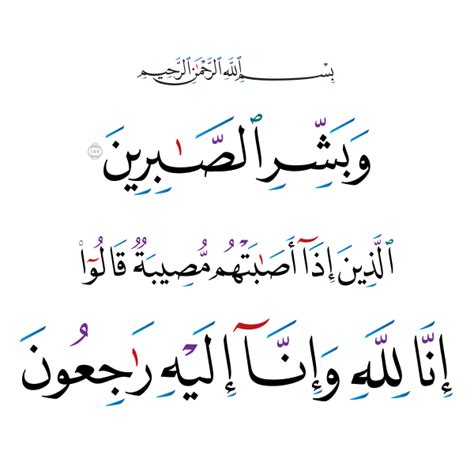 بِسْمِ اللَّهِ الرَّحْمَٰنِ الرَّحِيمِ
وَبَشِّرِ ٱلصَّـٰبِرِينَ ۝١٥٥
ٱلَّذِينَ إِذَآ أَصَـٰبَتْهُم مُّصِيبَةٌ قَالُوٓا۟
إِنَّا لِلَّهِ وَإِنَّآ إِلَيْهِ رَٰجِعُونَ